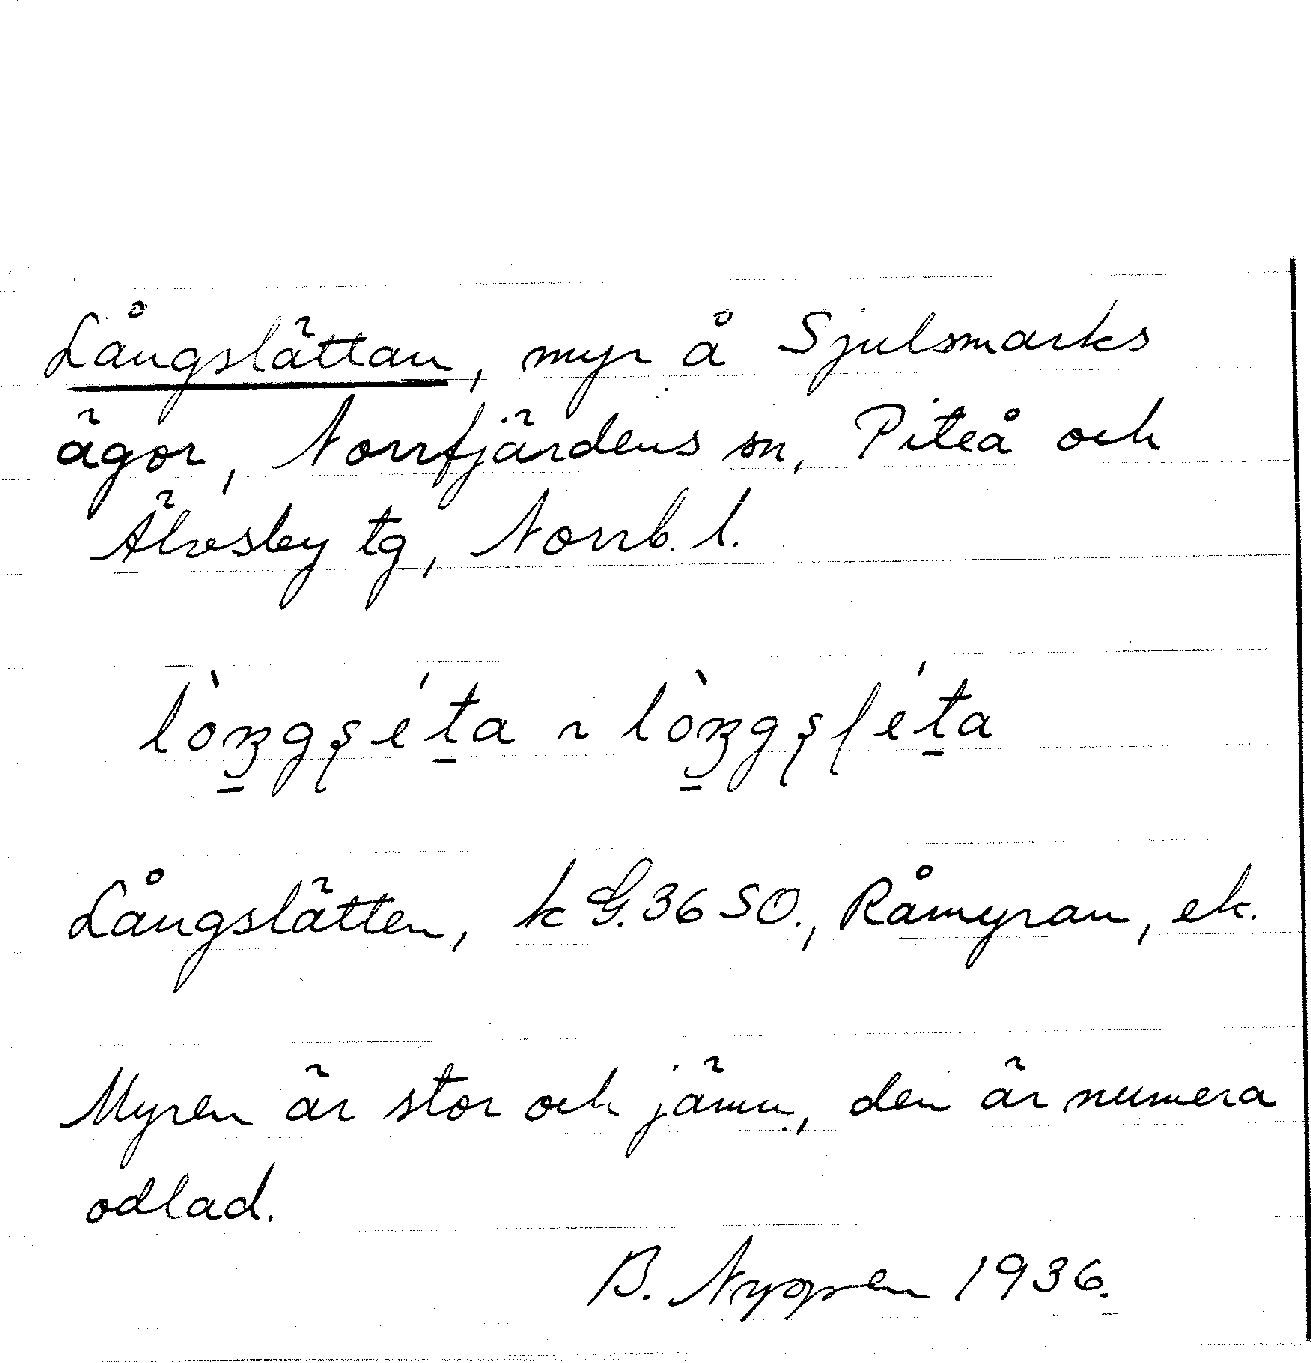 Långslättan, myr å Sjulsmarks
ägor, Norrfjärdens sn, Piteå och
Älvsby tg, Norrb. l.
Långslätten, k G.36 SO., Råmyran, ek.
Myren är stor och jämn, den är numera
odlad.
B. Nygren 1936.